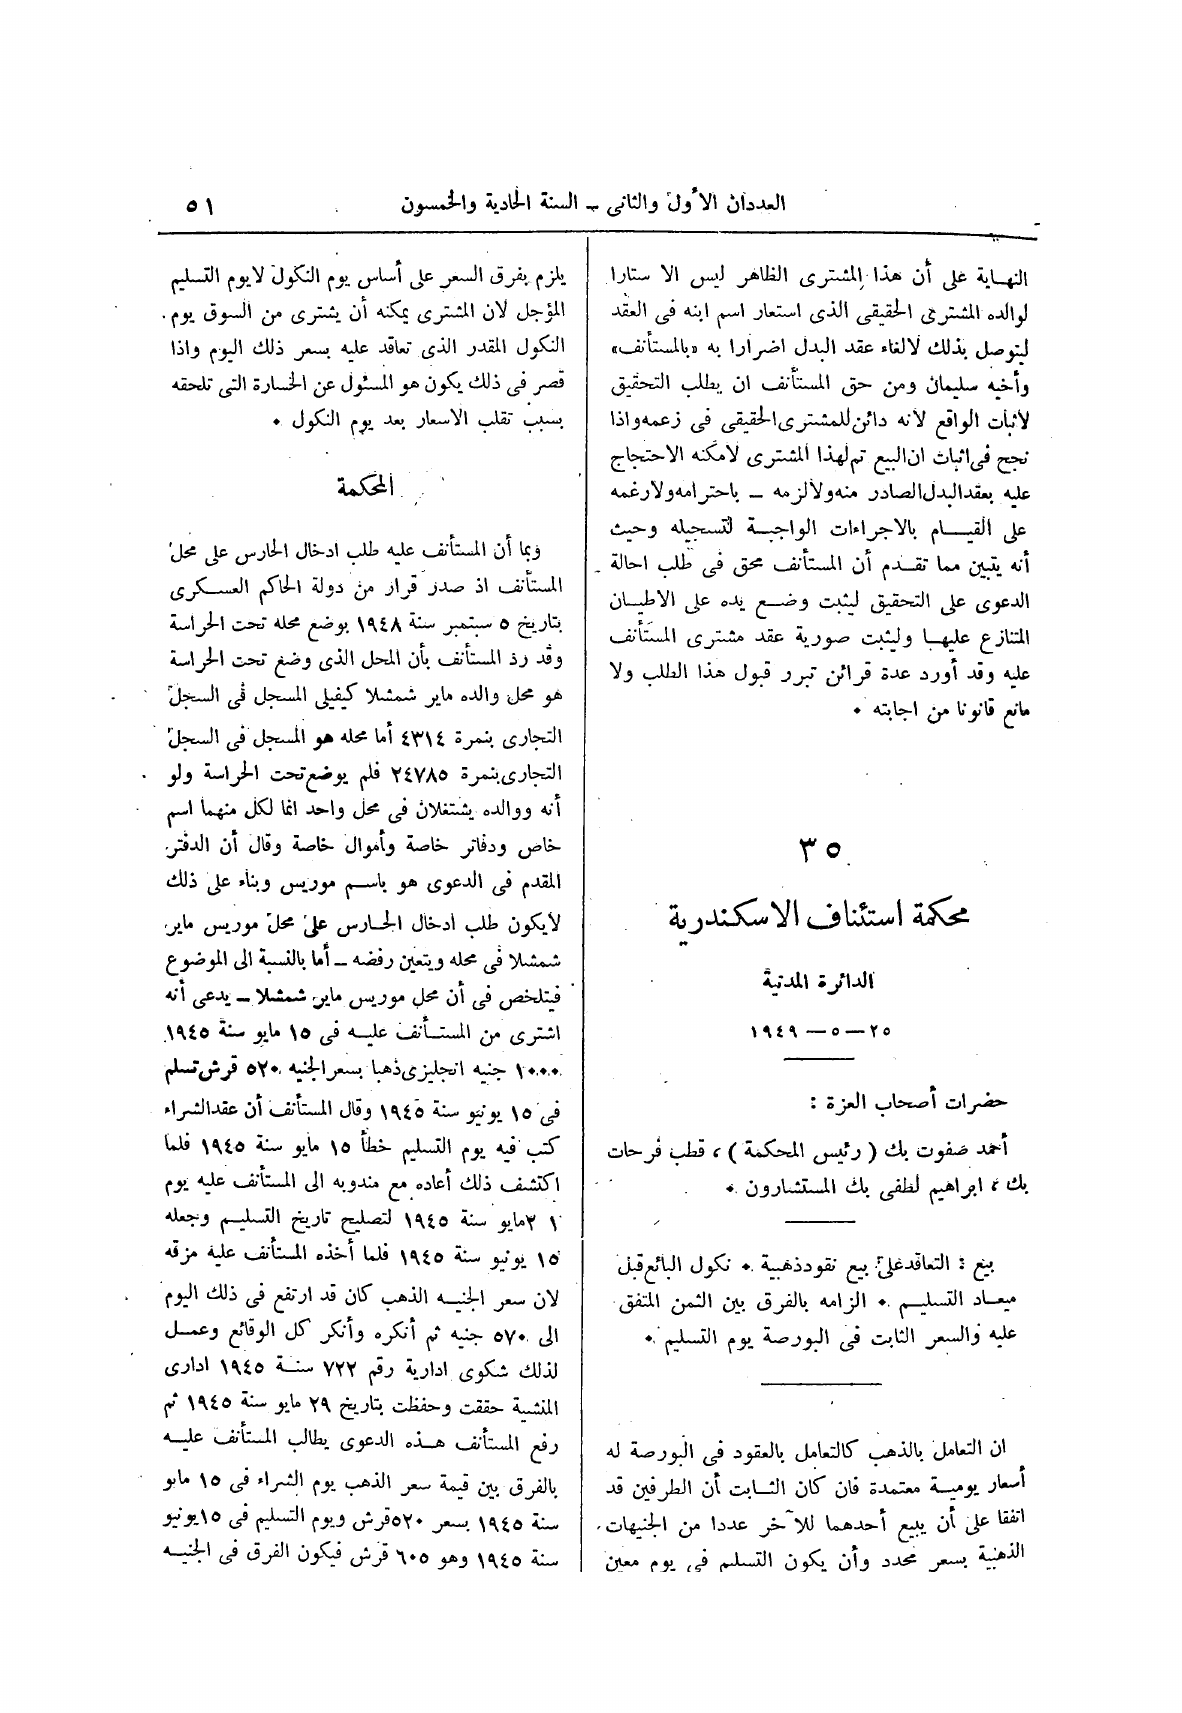 العددان الأول والثانى – السنة الحادية والخمسون
٥١
النهاية على أن هذا المشترى الظاهر ليس الا ستارا
لوالده المشترى الحقيقى الذى استعار اسم ابنه فى العقد
ليتوصل بذلك لالغاء عقد البدل اضرارا به «بالمستأنف»
وأخيه سليمان ومن حق المستأنف ان يطلب التحقيق
لاثبات الواقع لأنه دائن للمشترى الحقيقى فى زعمه واذا
نجح فى اثبات ان البيع تم لهذا المشترى لامكنه الاحتجاج
عليه بعقد البدل الصادر منه ولألزمه – باحترامه ولارغمه
على القيام بالاجراءات الواجبة لتسجيله وحيث
أنه يتبين مما تقدم أن المستأنف محق فى طلب احالة
الدعوى على التحقيق ليثبت وضع يده على الاطيان
المتنازع عليها وليثبت صورية عقد مشترى المستأنف
عليه وقد أورد عدة قرائن تبرر قبول هذا الطلب ولا
مانع قانونا من اجابته .
٣٥
محكمة استئناف الاسكندرية
الدائرة المدنية
٢٥ – ٥ – ١٩٤٩
حضرات أصحاب العزة :
أحمد صفوت بك ( رئيس المحكمة ) ، قطب فرحات
بك ، ابراهيم لطفى بك المستشارون .
بيع : التعاقد على بيع نقود ذهبية . نكول البائع قبل
ميعاد التسليم . الزامه بالفرق بين الثمن المتفق
عليه والسعر الثابت فى البورصة يوم التسليم .
ان التعامل بالذهب كالتعامل بالعقود فى البورصة له
أسعار يومية معتمدة فان كان الثابت أن الطرفين قد
اتفقا على أن يبيع أحدهما للآخر عددا من الجنيهات
الذهبية بسعر محدد وأن يكون التسلم فى يوم معين
يلزم بفرق السعر على أساس يوم النكول لا يوم التسليم
المؤجل لان المشترى يمكنه أن يشترى من السوق يوم
النكول المقدر الذى تعاقد عليه بسعر ذلك اليوم واذا
قصر فى ذلك يكون هو المسئول عن الخسارة التى تلحقه
بسبب تقلب الاسعار بعد يوم النكول .
المحكمة
وبما أن المستأنف عليه طلب ادخال الحارس على محل
المستأنف اذ صدر قرار من دولة الحاكم العسكرى
بتاريخ ٥ سبتمبر سنة ١٩٤٨ بوضع محله تحت الحراسة
وقد رد المستأنف بأن المحل الذى وضع تحت الحراسة
هو محل والده ماير شمشلا كيفيلى المسجل فى السجل
التجارى بنمرة ٤٣١٤ أما محله هو المسجل فى السجل
التجارى بنمرة ٢٤٧٨٥ فلم يوضع تحت الحراسة ولو
أنه ووالده يشتغلان فى محل واحد انما لكل منهما اسم
خاص ودفاتر خاصة وأموال خاصة وقال أن الدفتر
المقدم فى الدعوى هو باسم موريس وبناء على ذلك
لا يكون طلب ادخال الحارس على محل موريس ماير
شمشلا فى محله ويتعين رفضه – أما بالنسبة الى الموضوع
فيتلخص فى أن محل موريس ماير شمشلا – يدعى أنه
اشترى من المستأنف عليه فى ١٥ مايو سنة ١٩٤٥
١٠٠٠٠ جنيه انجليزى ذهبا بسعر الجنيه ٥٢٠ قرش تسلم
فى ١٥ يونيو سنة ١٩٤٥ وقال المستأنف أن عقد الشراء
كتب فيه يوم التسليم خطأ ١٥ مايو سنة ١٩٤٥ فلما
اكتشف ذلك أعاده مع مندوبه الى المستأنف عليه يوم
٢١ مايو سنة ١٩٤٥ لتصليح تاريخ التسليم وجعله
١٥ يونيو سنة ١٩٤٥ فلما أخذه المستأنف عليه مزقه
لان سعر الجنيه الذهب كان قد ارتفع فى ذلك اليوم
الى ٥٧٠ جنيه ثم أنكره وأنكر كل الوقائع وعمل
لذلك شكوى ادارية رقم ٧٢٢ سنة ١٩٤٥ ادارى
المنشية حققت وحفظت بتاريخ ٢٩ مايو سنة ١٩٤٥ ثم
رفع المستأنف هذه الدعوى يطالب المستأنف عليه
بالفرق بين قيمة سعر الذهب يوم الشراء فى ١٥ مايو
سنة ١٩٤٥ بسعر ٥٢٠ قرش ويوم التسليم فى ١٥ يونيو
سنة ١٩٤٥ وهو ٦٠٥ قرش فيكون الفرق فى الجنيه